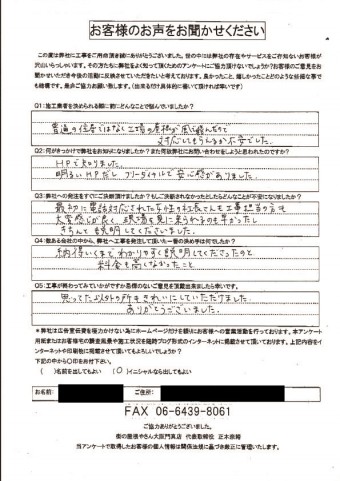 お客様のお声をお聞かせください
この度は弊社に工事をご用命頂き誠にありがとうございました。世の中には弊社の存在やサービスをご存知ないお客様が
沢山いらっしゃいます。その方たちに弊社をよく知って頂くためにアンケートにご協力頂けないでしょうか?お客様のご意見をお
聞かせいただき今後の活動に反映させていただきたいと考えております。良かったこと、嬉しかったことどのような些細な事で
も結構です。是非ご協力お願い致します。(出来るだけ具体的に書いて頂ければ幸いです)
Q1:施工業者を決められる際に前にどんなことで悩んでいましたか?
普通の住居ではなく工場の屋根が風で飛んだので
対応してもらえるか不安でした。
Q2:何がきっかけで弊社をお知りになりましたか?また何故弊社にお問い合わせをしようと思われたのですか?
HPで知りました。
明るいHPだし フリーダイヤルで安心感がありました。
Q3:弊社への発注をすぐにご決断頂けましたか?もしご決断されなかったとしたらどんなことが不安になりましたか?
最初に電話対応された女性の社長さんも工事担当の方も
大変感じが良く、現場を見に来られるのも早かったし
きちんと説明してくださいました。
Q4:数ある会社の中から、弊社へ工事を発注して頂いた一番の決め手は何でしたか?
納得いくまでわかりやすく説明してくださったのと
料金も高くなかったこと
Q5:工事が終わってみていかがですか忌憚のないご意見を頂戴出来ましたら幸いです。
思ってた以上の所もきれいにしていただけました。
ありがとうございました。
*弊社は広告宣伝費を極力かけない為にホームページだけを頼りにお客様への営業活動を行っております。本アンケート
用紙またはお客様宅の調査風景や施工状況を随時ブログ形式のインターネットに掲載させて頂いております。上記内容をイ
ンターネットや印刷物に掲載させて頂いてもよろしいでしょうか?
下記の中から〇印をお付け下さい。
( )名前を出してもよい (〇)イニシャルなら出してもよい
お名前: ご住所:
FAX 06-6439-8061
ご協力ありがとうございました。
街の屋根やさん大阪門真店 代表取締役 正木宗晴
当アンケートで取得したお客様の個人情報は関係法規に基づき厳正に管理いたします。